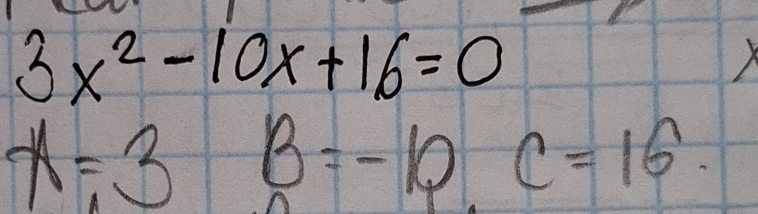 3x² - 10x + 16 = 0
A = 3 B = -10 C = 16.